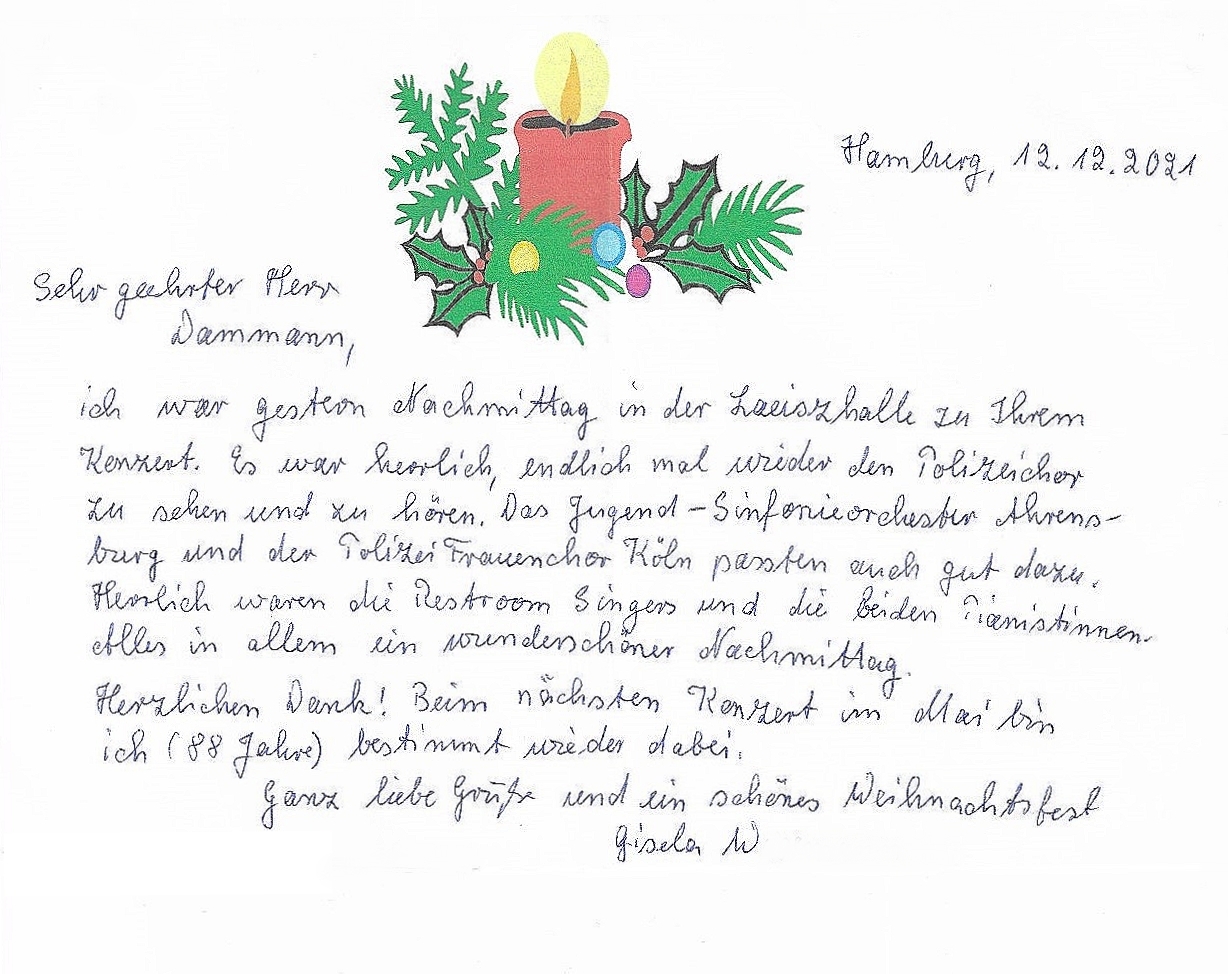 Hamburg, 12.12.2021
Sehr geehrter Herr
Dammann,
ich war gestern Nachmittag in der Laeiszhalle zu Ihrem
Konzert. Es war herrlich, endlich mal wieder den Polizeichor
zu sehen und zu hören. Das Jugend-Sinfonieorchester Ahrens-
burg und der Polizei Frauenchor Köln passten auch gut dazu.
Herrlich waren die Restroom Singers und die beiden Pianistinnen.
Alles in allem ein wunderschöner Nachmittag.
Herzlichen Dank! Beim nächsten Konzert im Mai bin
ich (88 Jahre) bestimmt wieder dabei.
Ganz liebe Grüße und ein schönes Weihnachtsfest
Gisela W